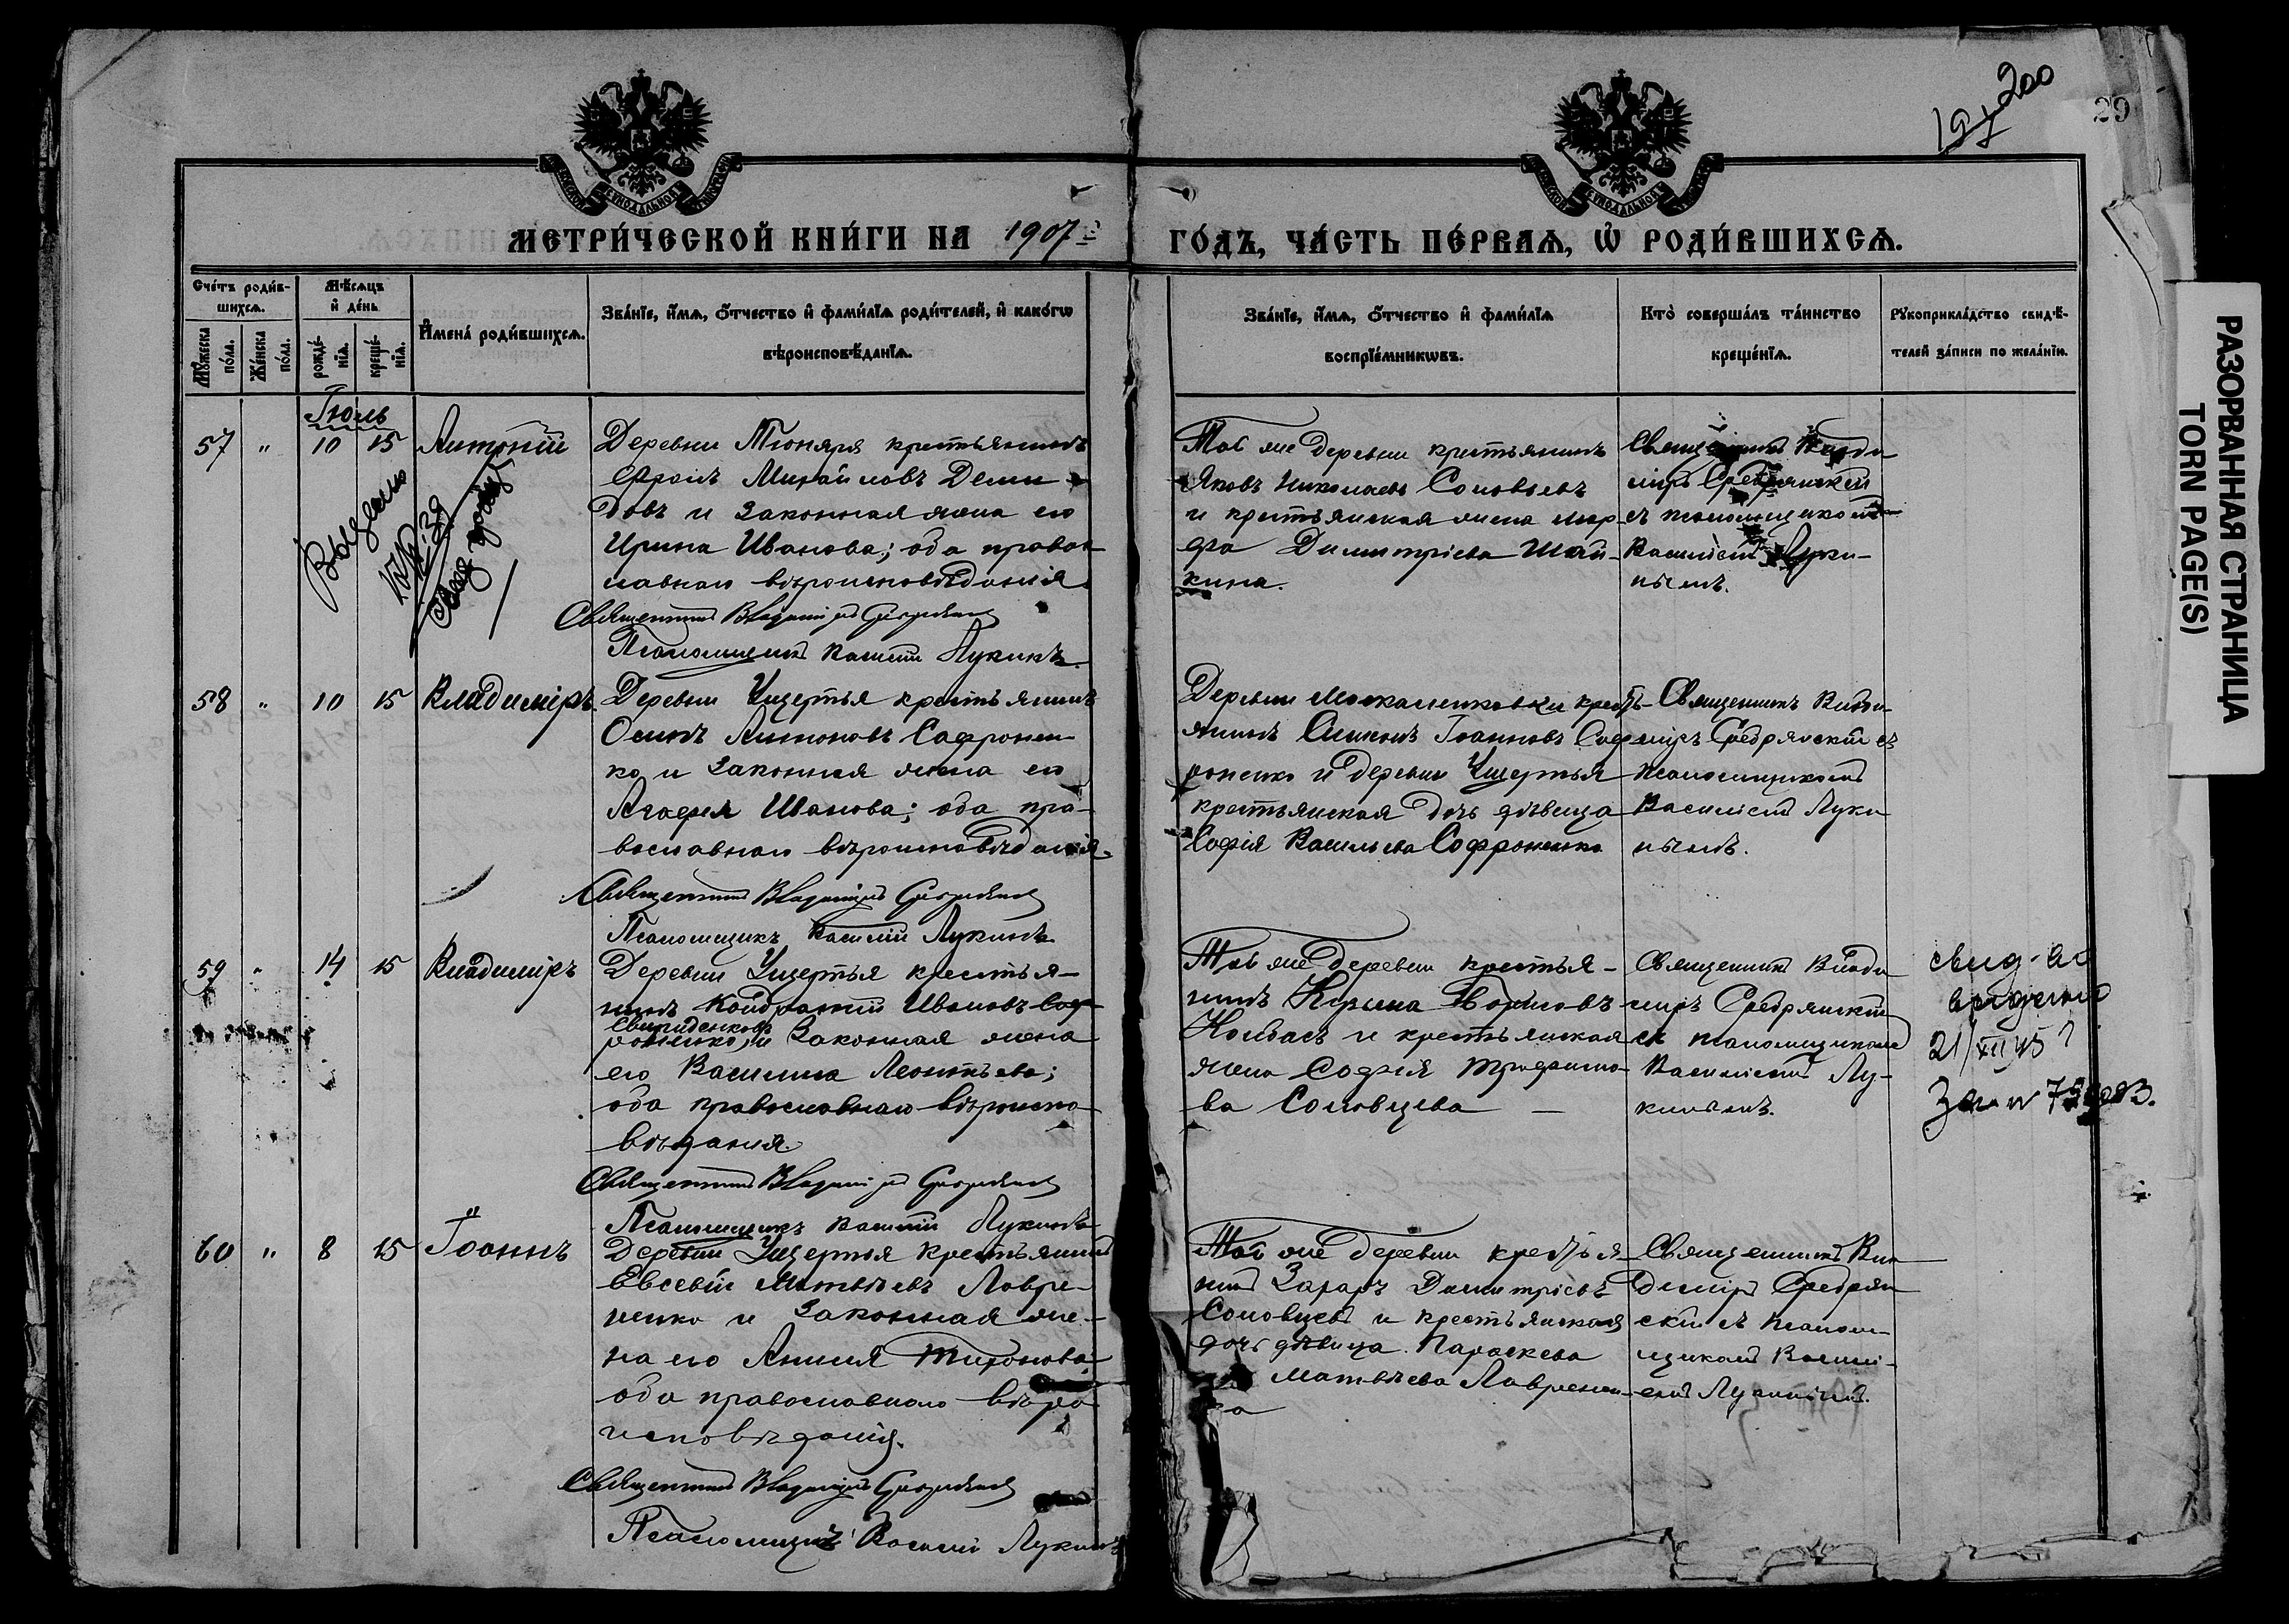 197 200
29
МЕТРИ́ЧЕСКОЙ КНИ́ГИ НА 1907 й
ГО́ДЪ, ЧА́СТЬ ПЕ́РВАѦ, Ѡ҆ РОДИ́ВШИХСѦ.
Сче́тъ роди́в-
шихсѧ.
Мꙋ́жеска по́ла.
Же́нска по́ла.
Мѣ́сѧцъ
и҆ де́нь
рожде́-
нїѧ.
креще́-
нїѧ.
И҆мена̀ роди́вшихсѧ.
Зва́нїе, и҆́мѧ, ѻ҆́тчество и҆ фами́лїѧ роди́телей, и҆ како́гѡ
вѣроисповѣ́данїѧ.
Зва́нїе, и҆́мѧ, ѻ҆́тчество и҆ фами́лїѧ
воспрїе́мникѡвъ.
Кто̀ соверша́лъ та́инство
креще́нїѧ.
Рꙋкоприкла́дство свидѣ́-
телей за́писи по жела́нїю.
Іюль
57 " 10 15 Антоній
Деревни Тюкяря крестьянинъ
Михайловъ Деми
довъ и законная жена его
Ирина Иванова; оба правос
лавнаго вѣроисповѣданія
Священникъ Владиміръ Сребрянскій
Псаломщикъ Василій Лукинъ.
Той же деревни крестьянинъ
Яковъ Николаевъ Соловьевъ
и крестьянская жена Мар-
фа Димитріева Шай-
кина.
Священникъ Влади
міръ Сребрянскій
съ псаломщикомъ
Василіемъ Луки-
нымъ.
Выдано
58 " 10 15 Владиміръ
Деревни Ущерпья крестьянинъ
Осипъ Антоновъ Сафронен-
ко и законная жена его
Агафія Иванова; оба пра-
вославнаго вѣроисповѣданія.
Священникъ Владиміръ Сребрянскій
Псаломщикъ Василій Лукинъ.
Деревни Москаленковки кресть-
янинъ Симеонъ Іоанновъ Соф
роненко и деревни Ущерпья
крестьянская дочь дѣвица
Софія Васильева Софроненко
Священникъ Влади-
міръ Сребрянскій съ
псаломщикомъ
Василіемъ Луки
нымъ.
59 " 14 15 Владиміръ
Деревни Ущерпья крестья-
нинъ Кондратій Ивановъ Соф
Свириденковъ
роненко, и законная жена
его Василиса Леонтьева;
оба православнаго вѣроиспо
вѣданія.
Священникъ Владиміръ Сребрянскій
Псаломщикъ Василій Лукинъ
Той же деревни крестья-
нинъ
Колбасъ и крестьянская
жена Софія Трифоно-
ва Соловцева —
Священникъ Влади
міръ Сребрянскій
съ псаломщикомъ
Василіемъ Лу-
кинымъ.
свид-во
выдано
21/XII 45 г
60 " 8 15 Іоаннъ
Деревни Ущерпья крестьянинъ
Евсевій Матвѣевъ Лавре-
ненко и законная же-
на его Анисія Тихонова;
оба православнаго вѣро
исповѣданія.
Священникъ Владиміръ Сребрянскій
Псаломщикъ Василій Лукинъ
Той же деревни крестья-
нинъ Захаръ Димитріевъ
Соловцевъ и крестьянская
дочь дѣвица Параскева
Матвѣева Лавренен-
ка
Священникъ Вла
диміръ Сребрян
скій съ псалом-
щикомъ Васили-
емъ Лукинымъ.
РАЗОРВАННАЯ СТРАНИЦА
TORN PAGE(S)